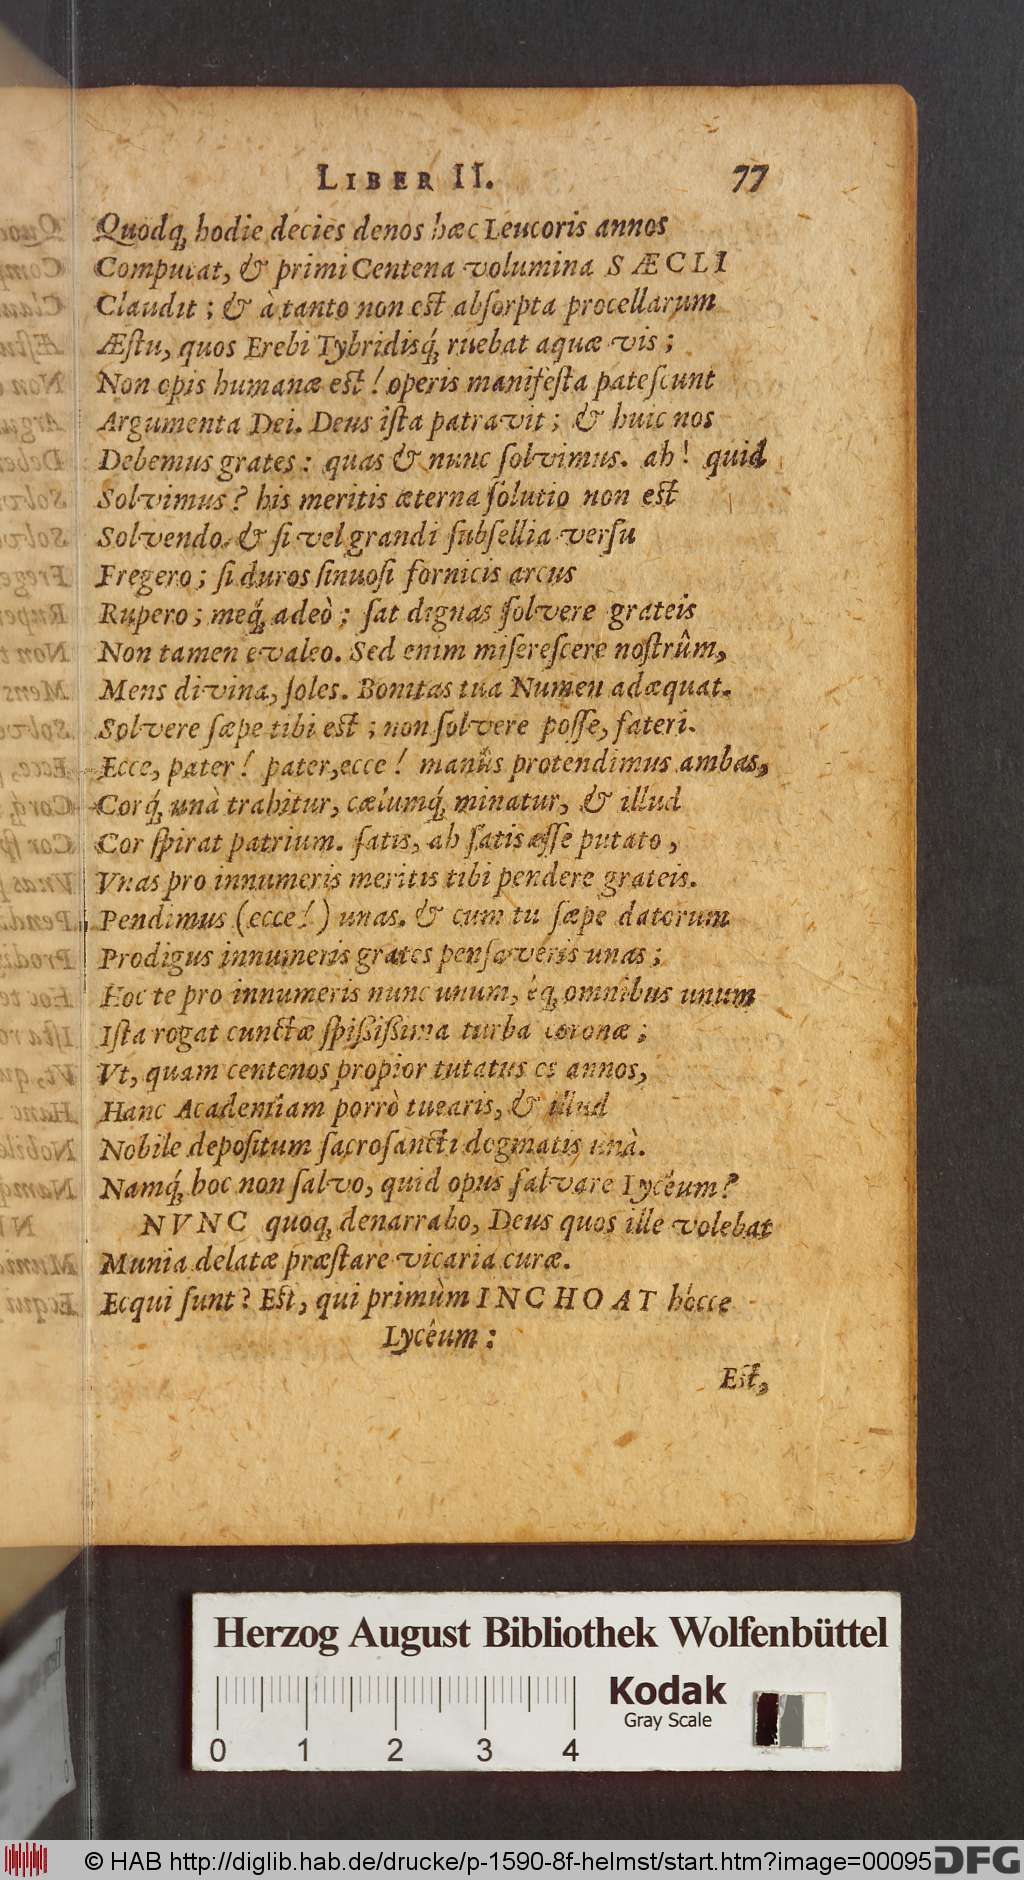 LIBER II. 77
Quodq́; hodie decies denos hæc Leucoris annos
Computat, & primi Centena volumina SÆCLI
Claudit; & à tanto non est absorpta procellarum
Æstu, quos Erebi Tybridisq́; ruebat aquæ vis;
Non opis humanæ est! operis manifesta patescunt
Argumenta Dei. Deus ista patravit; & huic nos
Debemus grates: quas & nunc solvimus. ah! quid
Solvimus? his meritis æterna solutio non est
Solvendo. & si vel grandi subsellia versu
Fregero; si duros sinuosi fornicis arcus
Rupero; meq́; adeò; sat dignas solvere grateis
Non tamen evaleo. Sed enim miserescere nostrûm,
Mens divina, soles. Bonitas tua Numen adæquat.
Solvere sæpe tibi est; non solvere posse, fateri.
Ecce, pater! pater, ecce! manûs protendimus ambas,
Corq́; unà trahitur, cælumq́; minatur, & illud
Cor spirat patrium. satis, ah satis esse putato,
Vnas pro innumeris meritis tibi pendere grateis.
Pendimus (ecce!) unas. & cum tu sæpe datorum
Prodigus innumeris grates pensaveris unas;
Hoc te pro innumeris nunc unum, éq; omnibus unum
Ista rogat cunctæ spißißima turba coronæ;
Vt, quam centenos propior tutatus es annos,
Hanc Academiam porrò tuearis, & illud
Nobile depositum sacrosancti dogmatis unà.
Namq́; hoc non salvo, quid opus salvare Lycéum?
NVNC quoq; denarrabo, Deus quos ille volebat
Munia delatæ præstare vicaria curæ.
Ecqui sunt? Est, qui primùm INCHOAT hócce
Lycêum:
Est,
Herzog August Bibliothek Wolfenbüttel
Kodak
Gray Scale
0 1 2 3 4
© HAB http://diglib.hab.de/drucke/p-1590-8f-helmst/start.htm?image=00095
DFG